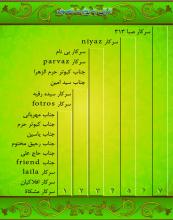 سرکار صبا ۳۱۳
سرکار niyaz
سرکار بی نام
سرکار parvaz
جناب کبوتر حرم الزهرا
جناب سید امین
سرکار سیده رقیه
سرکار fotros
جناب مهربانی
جناب کبوتر حرم
جناب یاسین
جناب رحیق مختوم
جناب حاج علی
جناب friend
سرکار laila
سرکار افلاکیان
سرکار مشکاة
۱ ۲ ۳ ۴ ۵ ۶ ۷